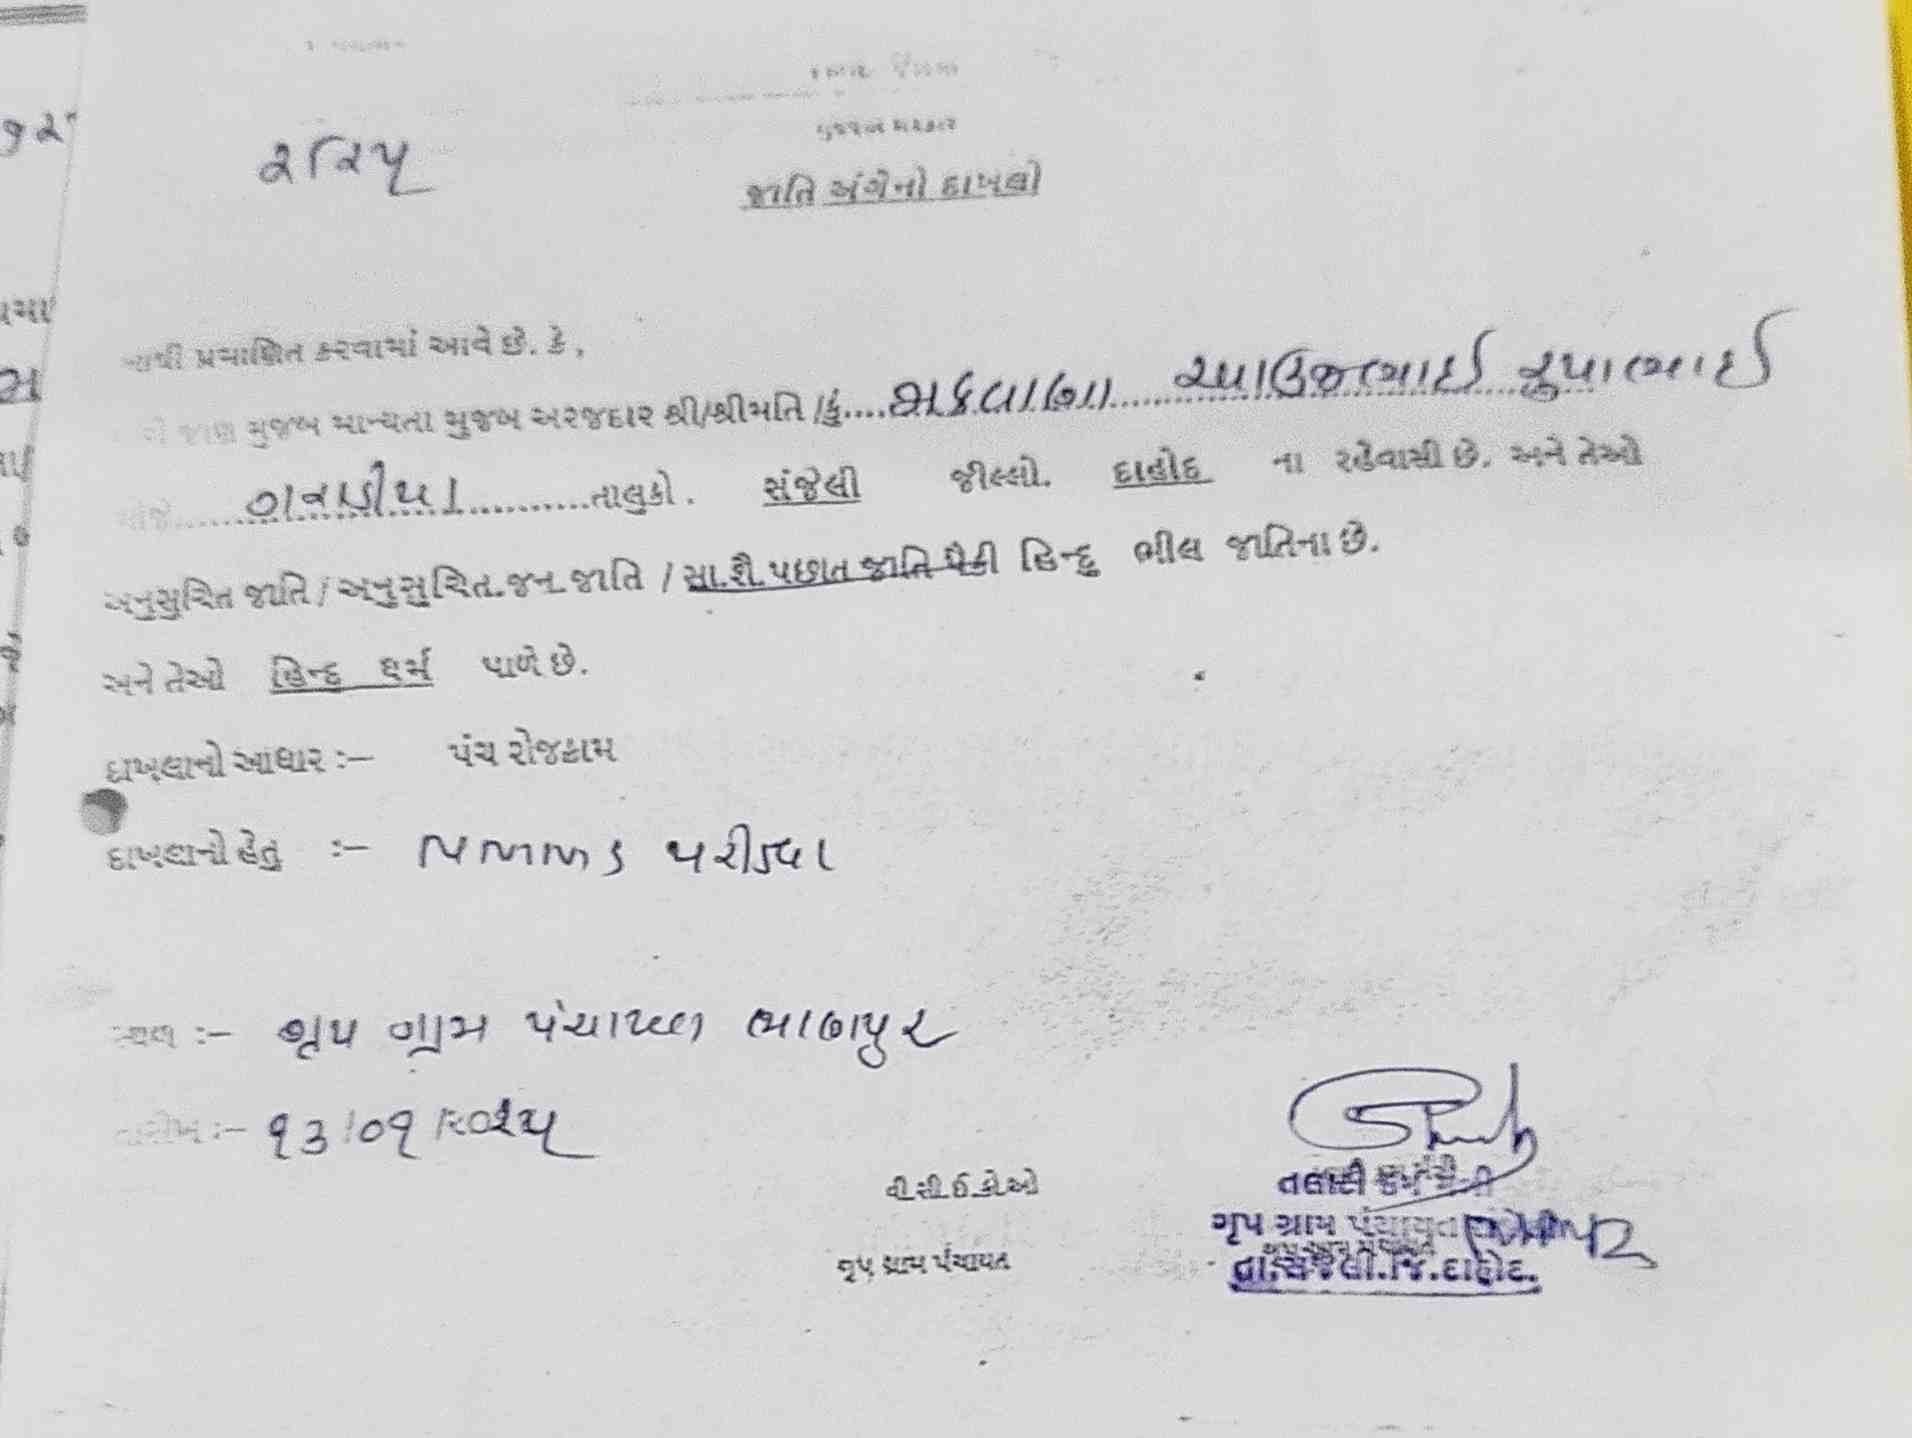 ગુજરાત સરકાર
૨/૨૫
જાતિ અંગેનો દાખલો
પ્રમાણિત કરવામાં આવે છે. કે,
જાણ મુજબ માન્યતા મુજબ અરજદાર શ્રી/શ્રીમતિ /કું.... મકવાણા રૂપાભાઈ
તાલુકો. સંજેલી જીલ્લો. દાહોદ ના રહેવાસી છે. અને તેઓ
અનુસુચિત જાતિ / અનુસુચિત.જન જાતિ / સા.શૈ.પછાત જાતિ પૈકી હિન્દુ ભીલ જાતિના છે.
અને તેઓ હિન્દુ ધર્મ પાળે છે.
દાખલાનો આધાર :– પંચ રોજકામ
દાખલાનો હેતુ :–
સ્થળ :– ગૃપ ગ્રામ પંચાયત ભાણપુર
તારીખ :– ૧૩/૦૧/૨૦૨૫
વી.સી.ઈ.કોઓ
તલાટી કમ મંત્રી
ગૃપ ગ્રામ પંચાયત
ગૃપ ગ્રામ પંચાયત ભાણપુર
તા.સંજેલી.જિ.દાહોદ.